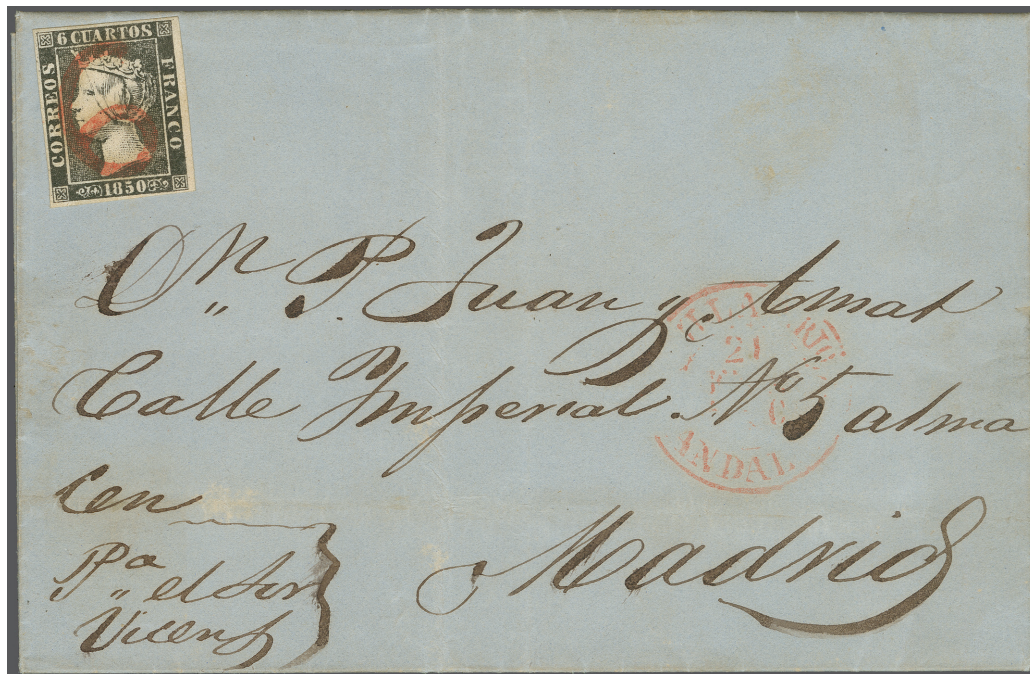 6 CUARTOS
CORREOS
FRANCO
1850
Dn P. Juan Amat
Calle Imperial No 5 alma
cen
Pa el Sor
Vicent
Madrid
21
ANDAL